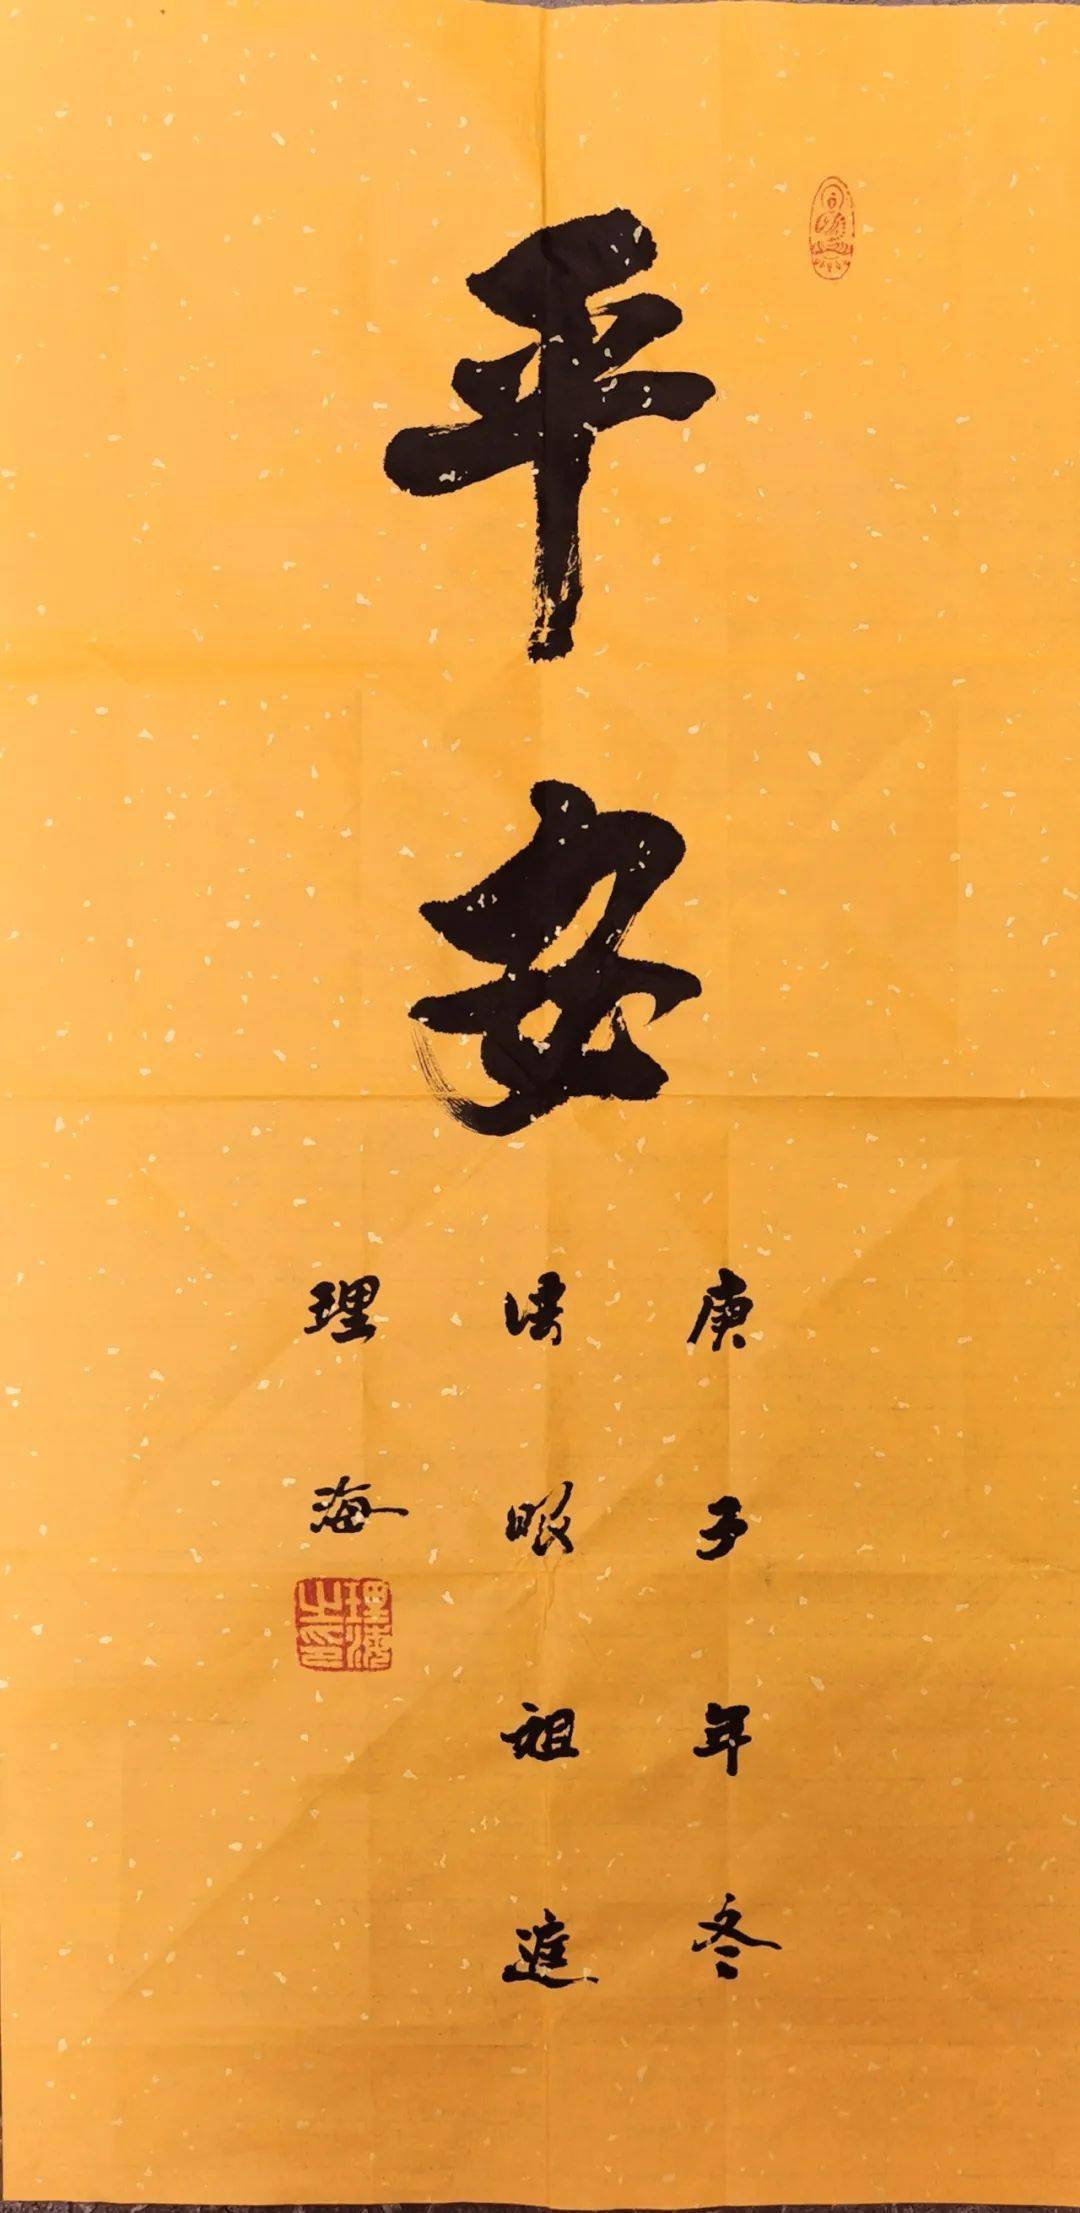 平安
庚子年冬
法眼祖庭
理海
理海之印